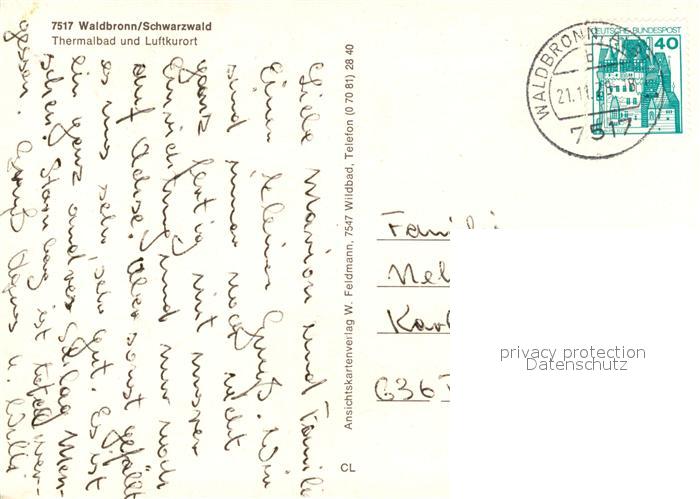 7517 Waldbronn/Schwarzwald
Thermalbad und Luftkurort
Liebe Marion und Famili
Einen kleinen Gruß. Wir
sind immer noch nicht
ganz fertig mit unserer
Einrichtung und nur noch
auf Achse. Aber sonst gefällt
es uns sehr, sehr gut. Es ist
ein ganz andrer Schlag Men-
schen. Starnberg ist total ver-
gessen. Gruß u. Willi
Ansichtskartenverlag W. Feldmann, 7547 Wildbad, Telefon (0 70 81) 28 40
CL
DEUTSCHE BUNDESPOST
40
WALDBRONN
b
21.11.
7517
Famili
Mel
Karl
636
privacy protection
Datenschutz